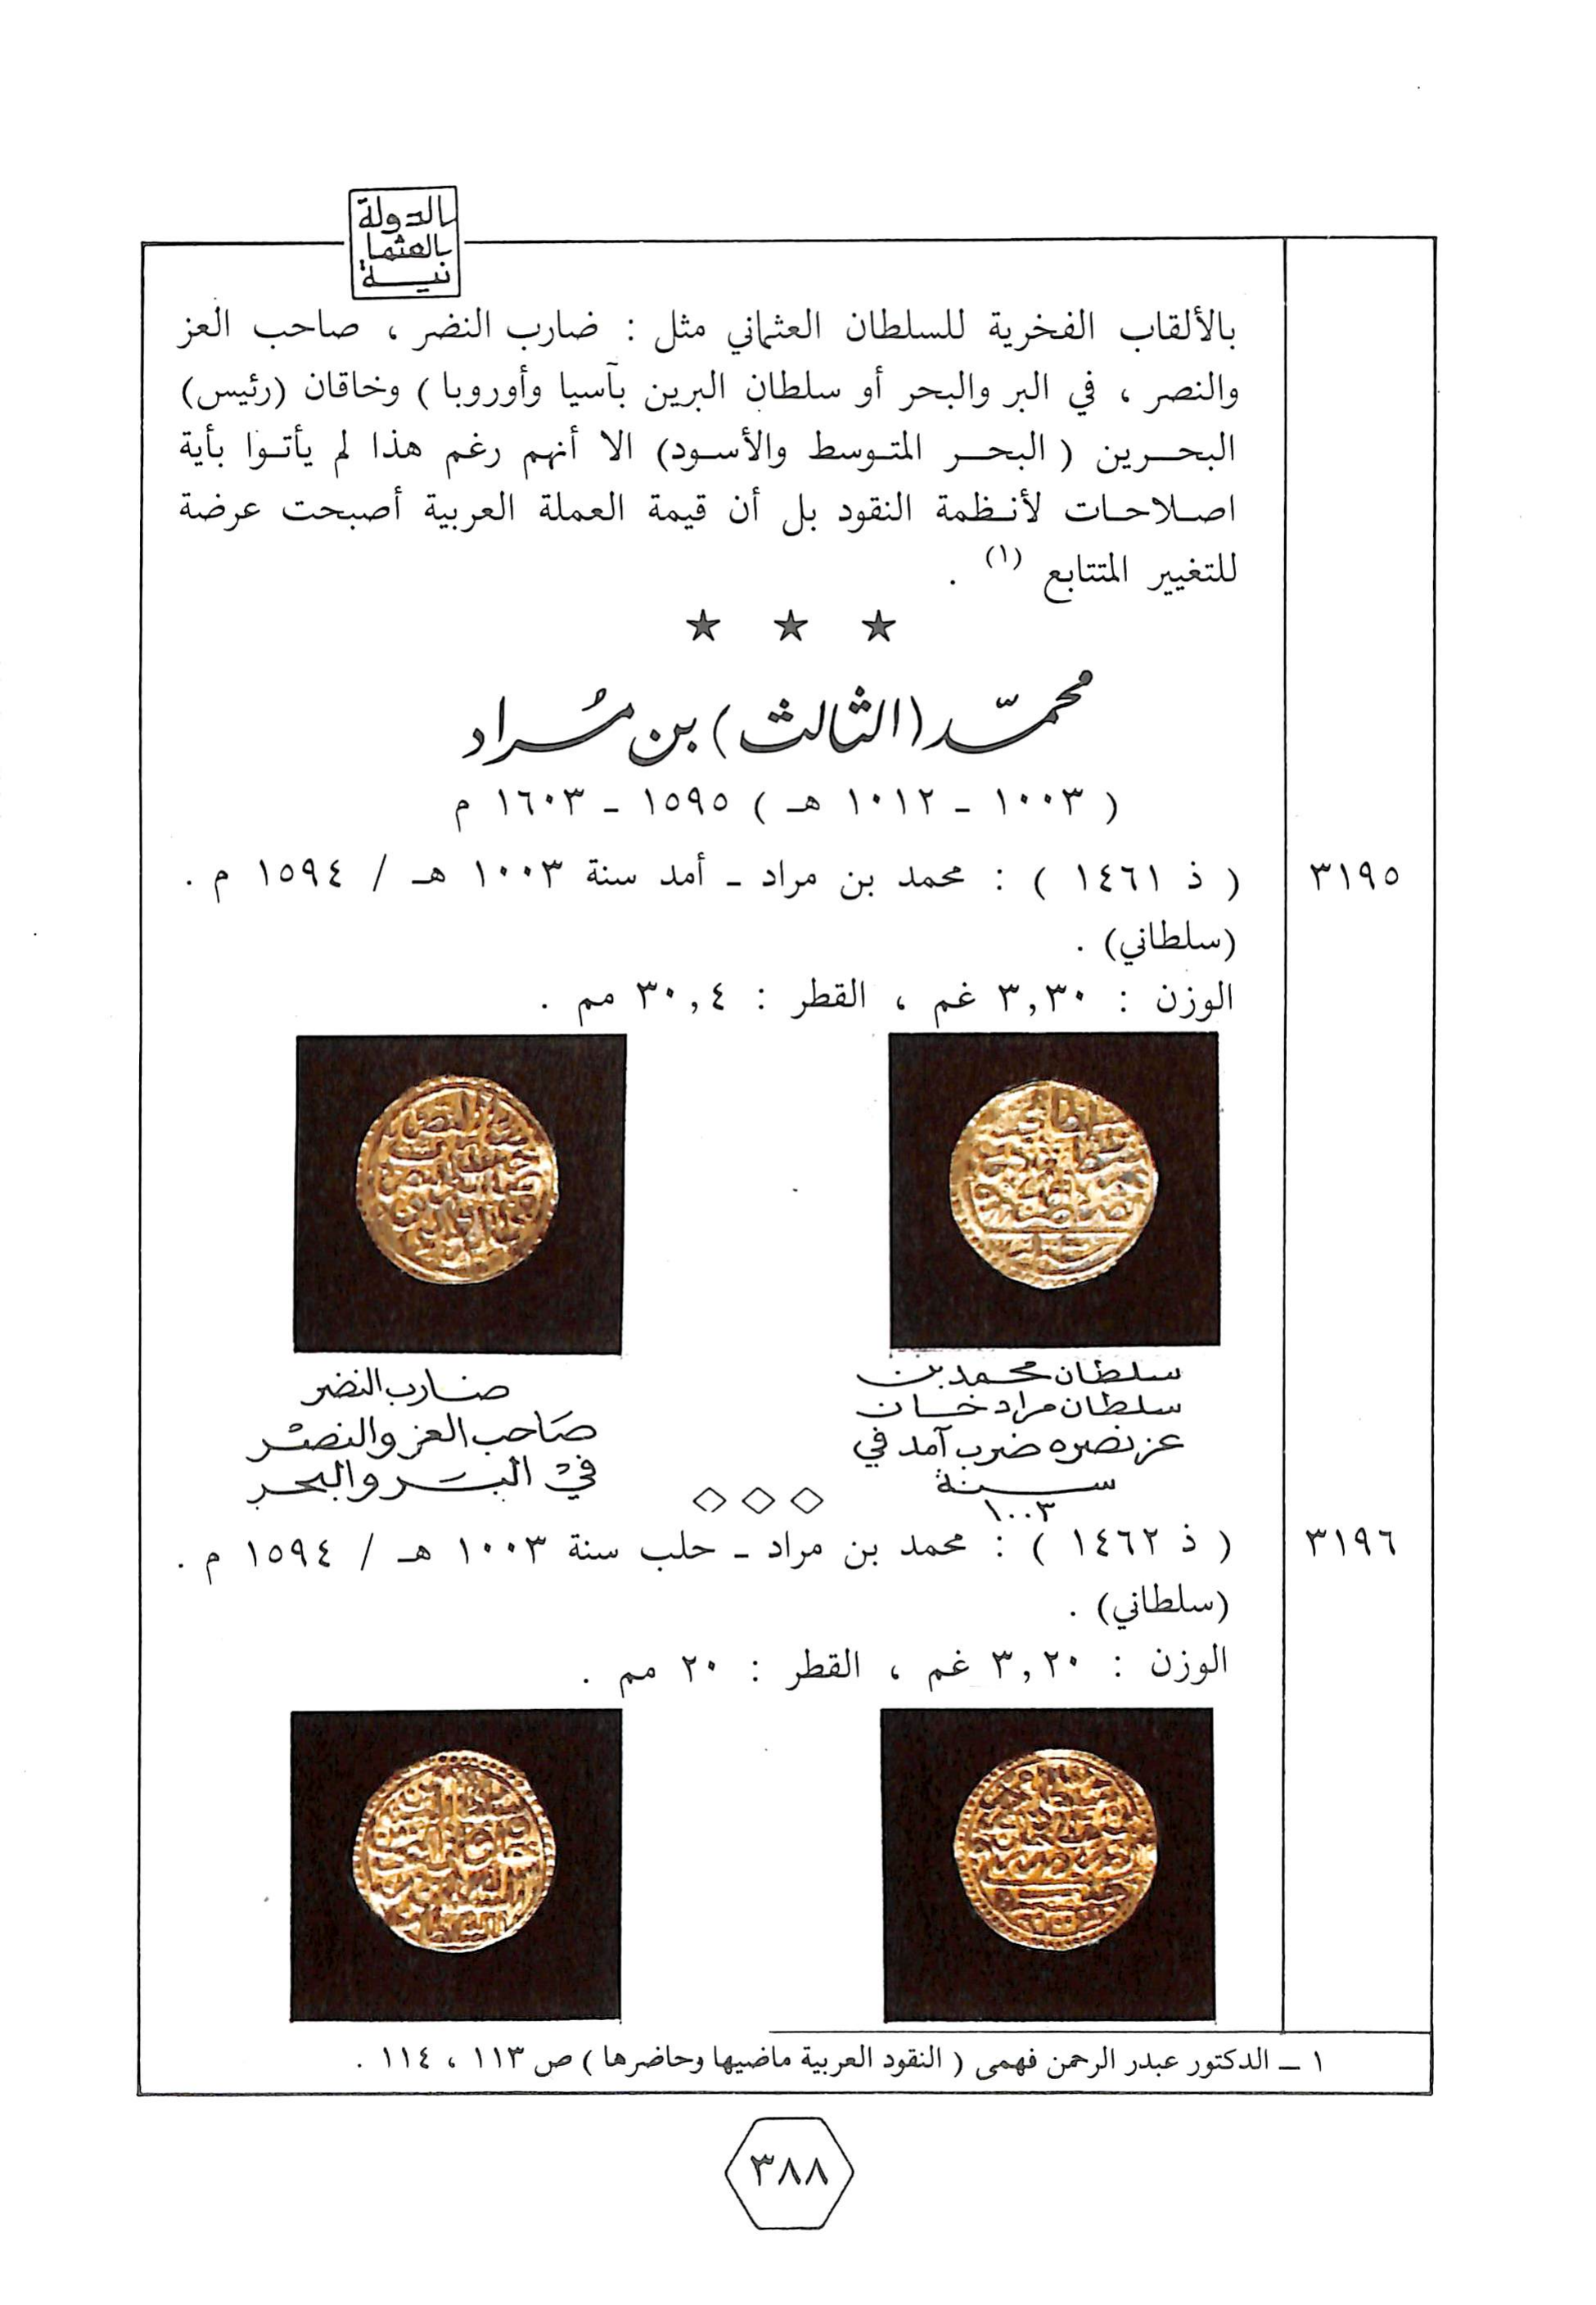 بالدولة
بالعثما
نية
بالألقاب الفخرية للسلطان العثماني مثل : ضارب النضر ، صاحب العز
والنصر ، في البر والبحر أو سلطان البرين بآسيا وأوروبا ) وخاقان (رئيس)
البحرين ( البحر المتوسط والأسود) الا أنهم رغم هذا لم يأتوا بأية
اصلاحات لأنظمة النقود بل أن قيمة العملة العربية أصبحت عرضة
للتغيير المتتابع (١) .
★ ★ ★
محمّد (الثالث) بن مُراد
( ١٠٠٣ - ١٠١٢ هـ ) ١٥٩٥ - ١٦٠٣ م
٣١٩٥ ( ذ ١٤٦١ ) : محمد بن مراد - أمد سنة ١٠٠٣ هـ / ١٥٩٤ م .
(سلطاني) .
الوزن : ٣,٣٠ غم ، القطر : ٣٠,٤ مم .
سلطان محمد بن
سلطان مراد خان
عز نصره ضرب آمد في
سنة
١٠٠٣
ضارب النضر
صَاحب العز والنصْر
فيْ البر والبحر
◇ ◇ ◇
٣١٩٦ ( ذ ١٤٦٢ ) : محمد بن مراد - حلب سنة ١٠٠٣ هـ / ١٥٩٤ م .
(سلطاني) .
الوزن : ٣,٢٠ غم ، القطر : ٢٠ مم .
١ - الدكتور عبدر الرحمن فهمى ( النقود العربية ماضيها وحاضرها ) ص ١١٣ ، ١١٤ .
٣٨٨